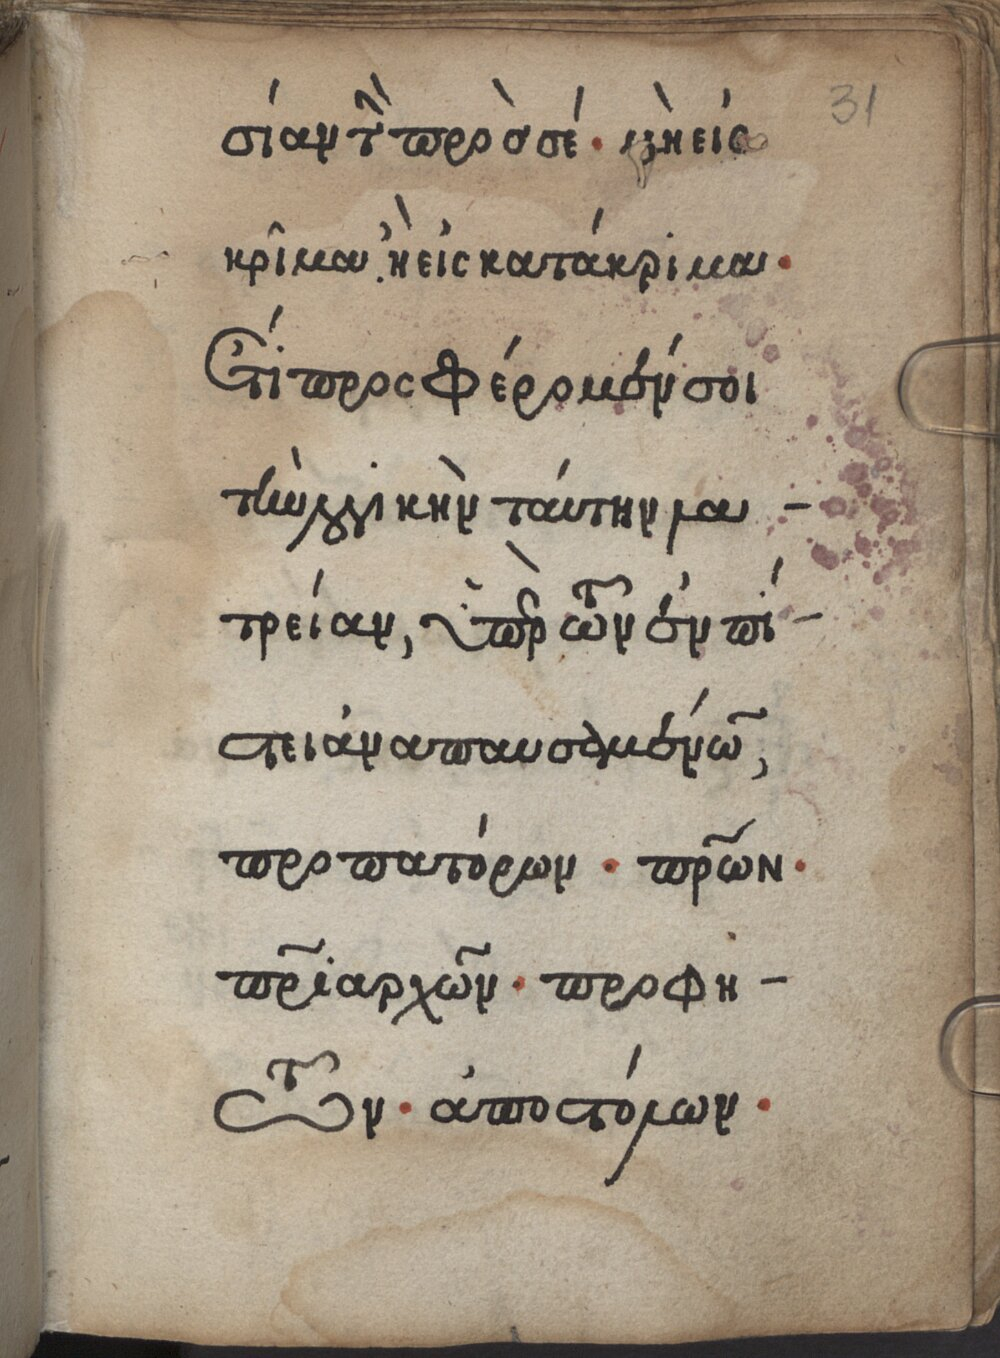 31
σίαν τὴν πρὸς σέ· μὴ εἰς
κρῖμα ἢ εἰς κατάκριμα·
Ἔτι προσφέρομέν σοι
τὴν λογικὴν ταύτην λα-
τρείαν, ὑπὲρ τῶν ἐν πί-
στει ἀναπαυσαμένων,
προπατόρων· πρῶν·
πριαρχῶν· προφη-
τῶν· ἀποστόλων·